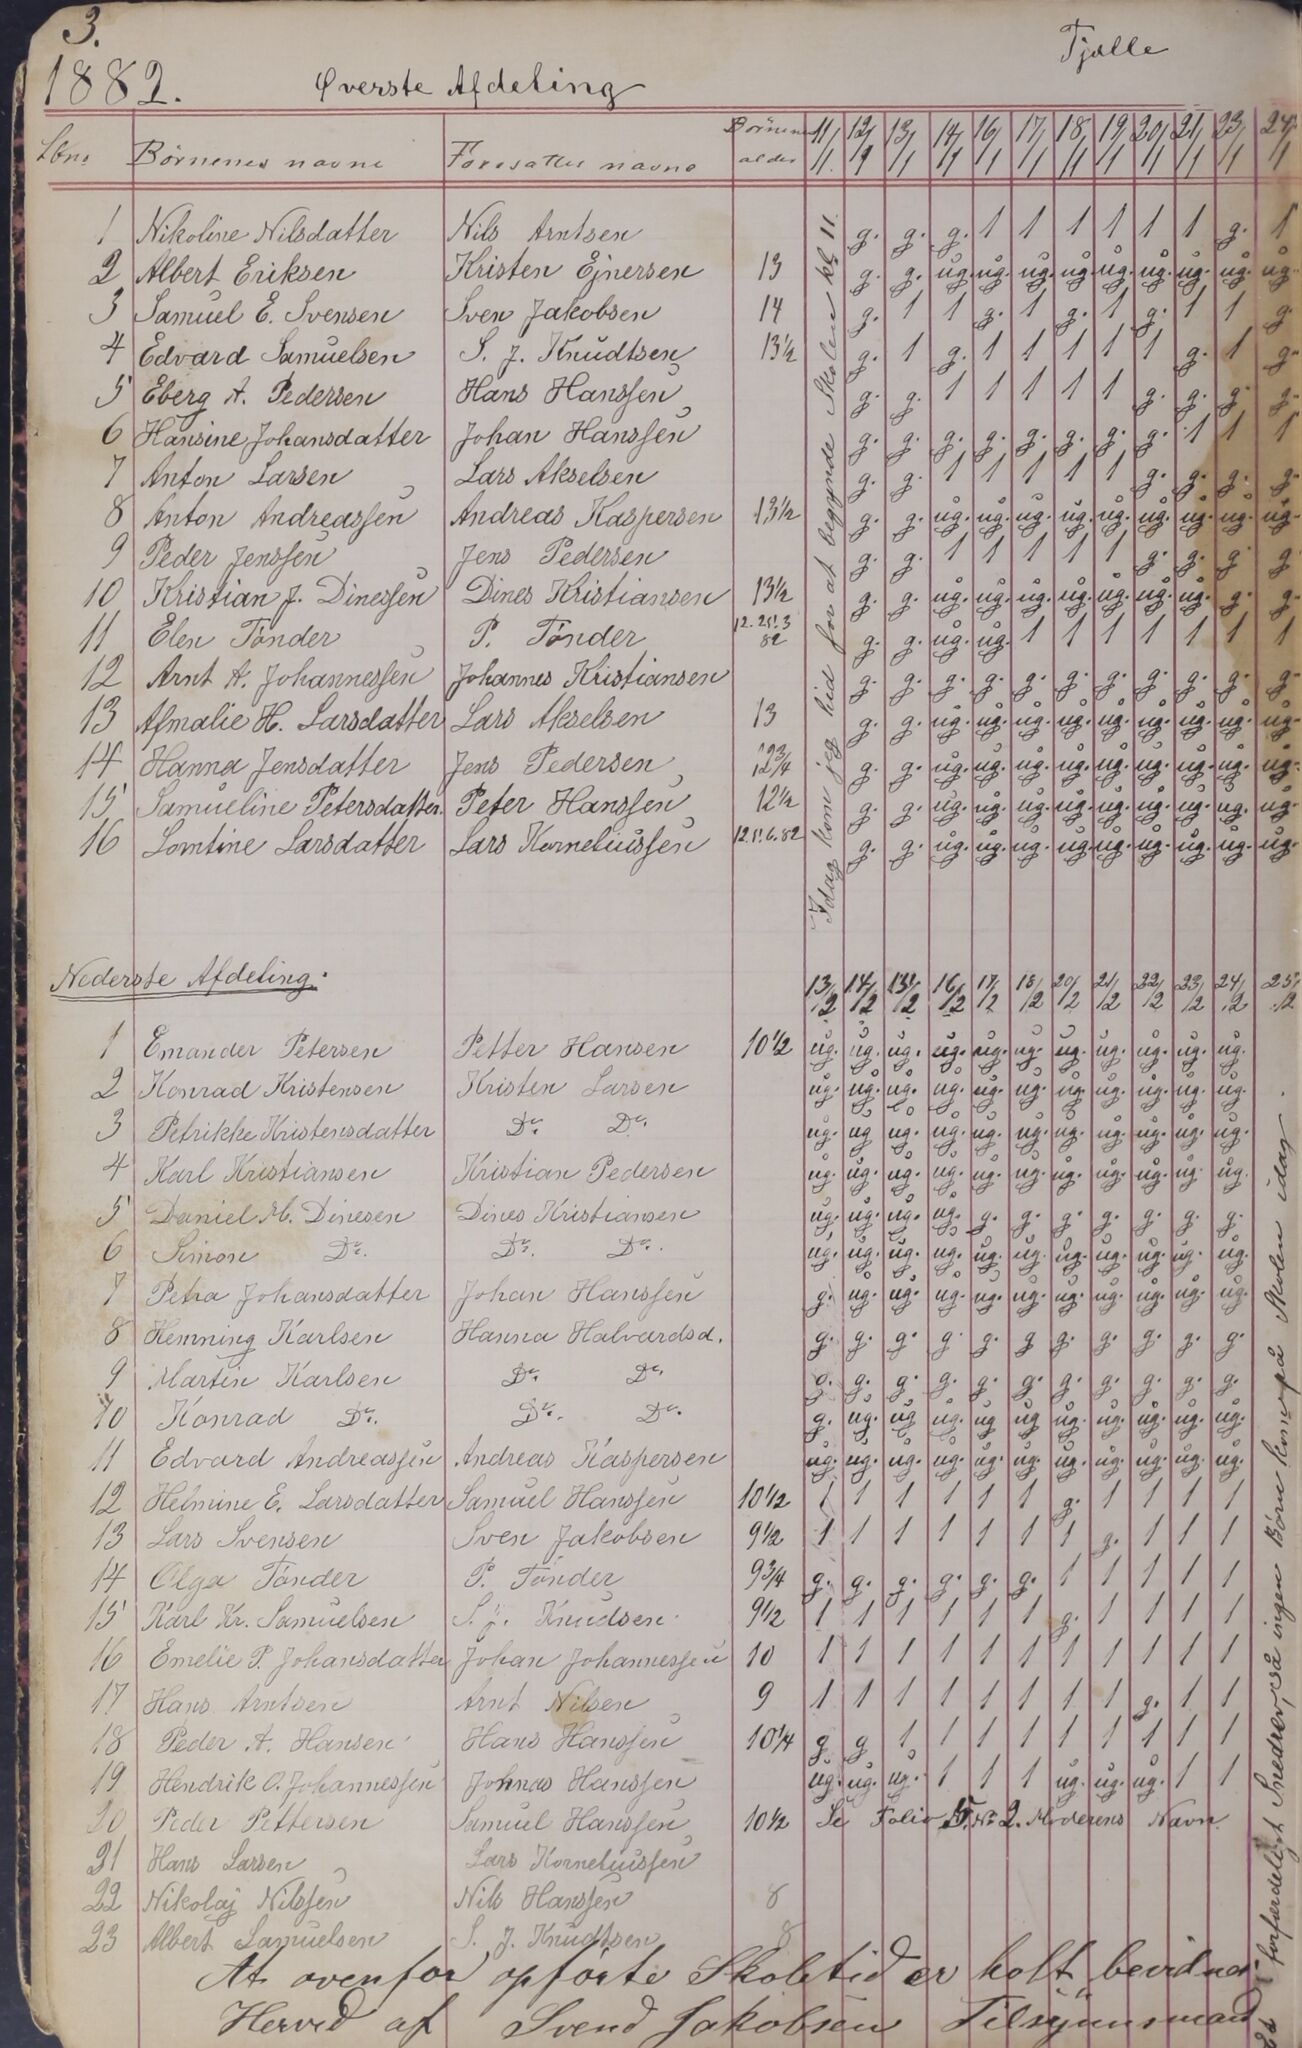 3.
Tjælle
1882. Øverste Afdeling
Lbn. Børnenes navne Foresattes navne Børnenes alder 11/11. 12/11 13/11 14/11 16/11 17/11 18/11 19/11 20/11 21/11 23/11 24/11
1 Nikoline Nilsdatter Nils Arntsen g. g. g. 1 1 1 1 1 1 g. 1
2 Albert Eriksen Kristen Ejnersen 13 g. g. ug. ug. ug. ug. ug. ug. ug. ug. ug.
3 Samuel E. Svensen Sven Jakobsen 14 g. 1 1 g. 1 g. 1 g. 1 1 g.
4 Edvard Samuelsen S. J. Knudtsen 13½ g. 1 g. 1 1 1 1 1 g. 1 g.
5 Eberg A. Pedersen Hans Hanssen g. g. 1 1 1 1 1 g. g. g. g.
6 Hansine Johansdatter Johan Hanssen g. g. g. g. g. g. g. g. 1 1 1
7 Anton Larsen Lars Akselsen g. g. 1 1 1 1 1 g. g. g. g.
8 Anton Andreassen Andreas Kaspersen 13½ g. g. ug. ug. ug. ug. ug. ug. ug. ug. ug.
9 Peder Jenssen Jens Pedersen g. g. 1 1 1 1 1 g. g. g. g
10 Kristian J. Dinessen Dines Kristiansen 13½ g. g. ug. ug. ug. ug. ug. ug. ug. g. g.
11 Elen Tönder P. Tönder 12. 25/3 82 g. g. ug. ug. 1 1 1 1 1 1 1
12 Arnt A. Johannessen Johannes Kristiansen g. g. g. g. g. g. g. g. g. g. g.
13 Amalie H. Larsdatter Lars Akselsen 13 g. g. ug. ug. ug. ug. ug. ug. ug. ug. ug.
14 Hanna Jensdatter Jens Pedersen 12¾ g. g. ug. ug. ug. ug. ug. ug. ug. ug. ug.
15 Samueline Petersdatter. Peter Hanssen 12½ g. g. ug. ug. ug. ug. ug. ug. ug. ug. ug.
16 Lomtine Larsdatter Lars Korneliussen g. g. ug. ug. ug. ug. ug. ug. ug. ug. ug.
Idag kom jeg hid for at begynde Skolen kl. 11.
Nederste Afdeling. 13/2 14/2 15/2 16/2 17/2 18/2 20/2 21/2 22/2 23/2 24/2 25/2
1 Emander Petersen Petter Hansen 10½ ug. ug. ug. ug. ug. ug. ug. ug. ug. ug. ug.
2 Konrad Kristensen Kristen Larsen ug. ug. ug. ug. ug. ug. ug. ug. ug. ug. ug.
3 Petrikke Kristensdatter Do. Do. ug. ug ug. ug. ug. ug. ug. ug. ug. ug. ug.
4 Karl Kristiansen Kristian Pedersen ug. ug. ug. ug. ug. ug. ug. ug. ug. ug. ug.
5 Daniel M. Dinesen Dines Kristiansen ug. ug. ug. ug. g. g. g. g. g. g. g.
6 Simon Do. Do. Do. ug. ug. ug. ug. ug. ug. ug. ug. ug. ug. ug.
7 Petra Johansdatter Johan Hanssen g. ug. ug. ug. ug. ug. ug. ug. ug. ug. ug.
8 Hemming Karlsen Hanna Halvardsd. g. g. g. g. g. g g. g. g. g. g.
9 Martin Karlsen Do. Do. g. g. g. g. g. g. g. g. g. g. g.
10 Konrad Do. Do. Do. g. ug. ug ug. ug ug ug. ug. ug. ug. ug.
11 Edvard Andreassen Andreas Kaspersen ug. ug. ug. ug. ug. ug. ug. ug. ug. ug. ug.
12 Helmine E. Larsdatter Samuel Hanssen 10½ 1 1 1 1 1 1 g. 1 1 1 1
13 Lars Svensen Sven Jakobsen 9½ 1 1 1 1 1 1 1 g. 1 1 1
14 Olga Tönder P. Tönder 9¾ g. g. g. g. g. g. 1 1 1 1 1
15 Karl Kr. Samuelsen S. J. Knudsen 9½ 1 1 1 1 1 1 g. 1 1 1 1
16 Emelie P. Johansdatter Johan Johannessen 10 1 1 1 1 1 1 1 1 1 1 1
17 Hans Arntsen Arnt Nilsen 9 1 1 1 1 1 1 1 1 g. 1 1
18 Peder A. Hansen Hans Hanssen 10¼ g g 1 1 1 1 1 1 1 1 1
19 Hendrik O. Johannessen Johnas Hanssen ug. ug. ug. 1 1 1 ug. ug. ug. 1 1
20 Peder Pettersen Samuel Hanssen 10½ Se Folio 15. No 2. Moderens Navn.
21 Hans Larsen Lars Korneliussen
22 Nikolaj Nilssen Nils Hanssen 8
23 Albert Samuelsen S. J. Knudtsen 8
forfærdeligt Snedrev, så ingen Børn kom på Skolen idag.
At ovenfor opførte Skoletid er holt bevidner
Herved af Svend Jakobsen Tilsynsmand